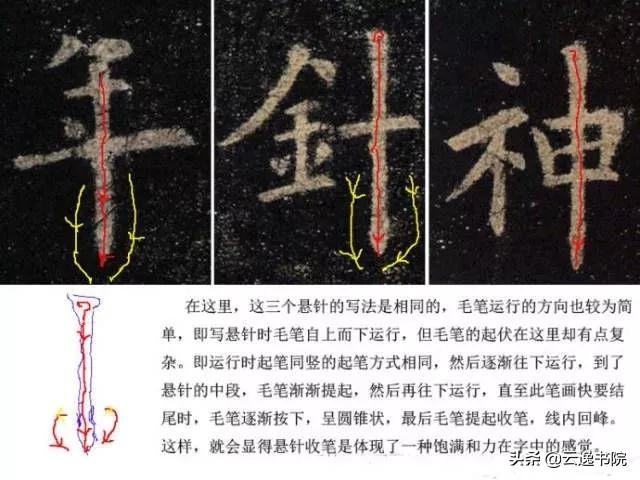 年 針 神
在这里，这三个悬针的写法是相同的，毛笔运行的方向也较为简
单，即写悬针时毛笔自上而下运行，但毛笔的起伏在这里却有点复
杂。即运行时起笔同竖的起笔方式相同，然后逐渐往下运行，到了
悬针的中段，毛笔渐渐提起，然后再往下运行，直至此笔画快要结
尾时，毛笔逐渐按下，呈圆锥状，最后毛笔提起收笔，线内回峰。
这样，就会显得悬针收笔是体现了一种饱满和力在字中的感觉。
头条 @云逸书院